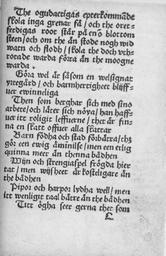 The ogudactigas epterkommāde
skola inga grenar få / och the oret-
ferdigas root står på en blottom
steen / och om the än stode nogh wid
watn och flodh / skola the doch vth-
rotade warda förra än the moogne
warda.
Göra wel är såsom en welsignat
yrtegård / och barmhertighet bliff-
uer ewinneliga
Then som berghar sich med sino
arbete / och låter sich nöya / han haff-
uer itt roligit leffuerne / thet är fin-
na en skatt offuer alla skattar
Barn födha och stad förbätra / thz
gör een ewig åminilse / men een erlig
quinna meer än the bådhen
Wijn och strengiaspel frögda hier
tat / men wijsheet är kosteligare än
the bådhen
Pipor och harpor lydha wel / men
itt wenligit taal bätre än the bådhen
Titt ögha seer gerna thet som
L